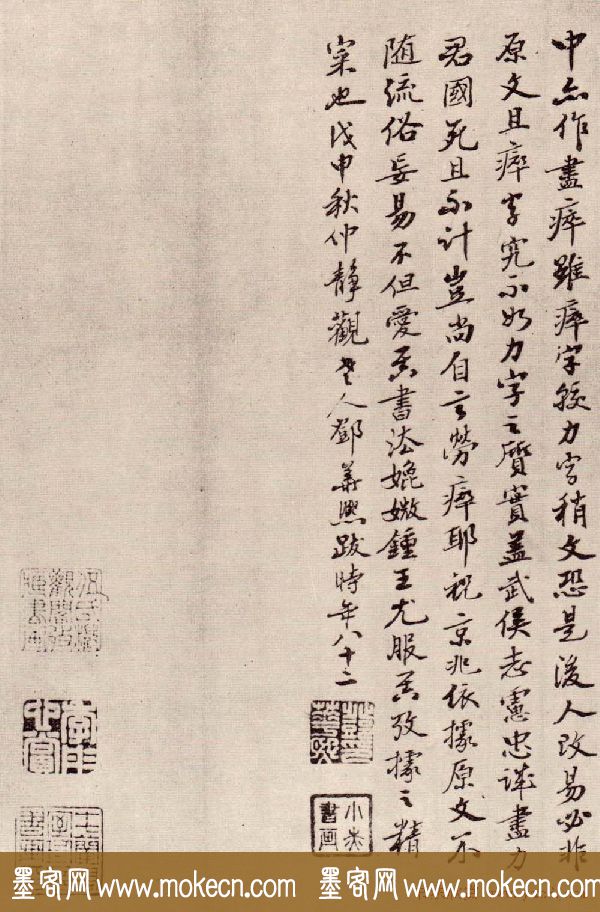 中亦作盡瘁雖瘁字較力字稍文恐是後人改易必非
原文且瘁字究不如力字之質實蓋武侯志憲忠誠盡力
君國死且不計豈尚自言勞瘁耶祝京兆依據原文不
随流俗妄易不但愛其書法媲媺鍾王尤服其攷據之精
案也戊申秋仲靜觀老人鄧華熙跋時年八十二
小赤
書画
墨客网 www.mokecn.com 墨客网 www.mokecn.com